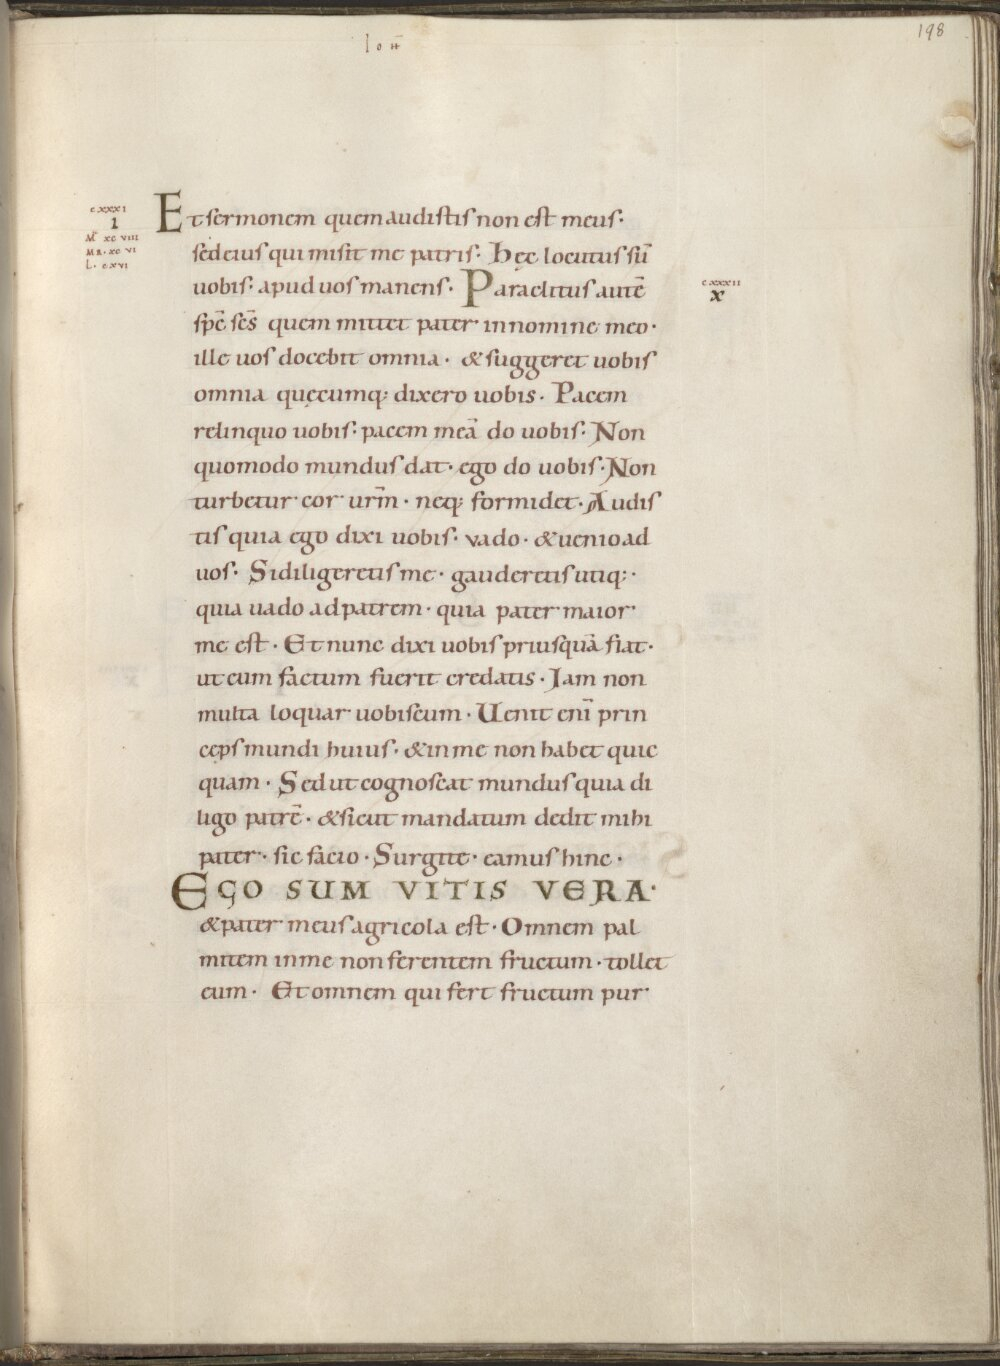 Ioh̄
198
cxxxi
i
M̄ xc viii
MR· xc vi
L· cxvi
Et sermonem quem audistis non est meus·
sed eius qui misit me patris· hęc locutus sū
uobis· apud uos manens· Paraclitus autē
cxxxii
x
sp̄c sc̄s quem mittet pater in nomine meo·
ille uos docebit omnia· & suggeret uobis
omnia quęcumq; dixero uobis· Pacem
relinquo uobis· pacem meā do uobis· Non
quomodo mundus dat· ego do uobis· Non
turbetur cor ur̄m· neq; formidet· Audis
tis quia ego dixi uobis· vado· & uenio ad
uos· Si diligeretis me· gauderetis utiq;·
quia uado ad patrem· quia pater maior
me est· Et nunc dixi uobis priusquā fiat·
ut cum factum fuerit credatis· Iam non
multa loquar uobiscum· Uenit enī prin
ceps mundi huius· & in me non habet quic
quam· Sed ut cognoscat mundus quia di
ligo patrē· & sicut mandatum dedit mihi
pater· sic facio· Surgite· eamus hinc·
EGO SUM VITIS VERA·
& pater meus agricola est· Omnem pal
mitem in me non ferentem fructum· tollet
eum· Et omnem qui fert fructum pur